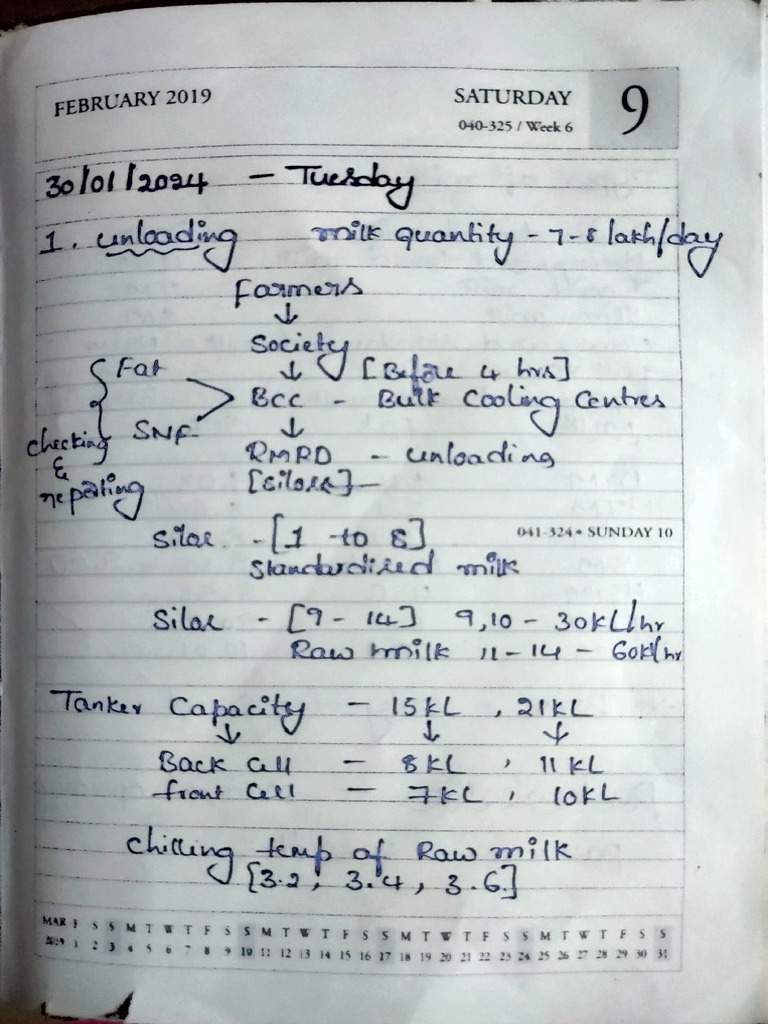 FEBRUARY 2019
SATURDAY 9
040-325 / Week 6
30/01/2024 - Tuesday
1. unloading milk quantity - 7-8 lakh/day
Farmers
↓
Society
↓ [Before 4 hrs]
{ Fat
BCC - Bulk Cooling Centres
SNF ↓
checking
& RMRD - unloading
reporting [Silose] -
Siloe - [1 to 8]
041-324 • SUNDAY 10
Standardised milk
Siloe - [9 - 14] 9,10 - 30KL/hr
Raw milk 11-14 - 60Kl/hr
Tanker Capacity - 15KL , 21KL
↓ ↓ ↓
Back Cell - 8KL , 11KL
front Cell - 7KL , 10KL
chilling temp of Raw milk
[3.2, 3.4, 3.6]
MAR F S S M T W T F S S M T W T F S S M T W T F S S M T W T F S S
2019 1 2 3 4 5 6 7 8 9 10 11 12 13 14 15 16 17 18 19 20 21 22 23 24 25 26 27 28 29 30 31